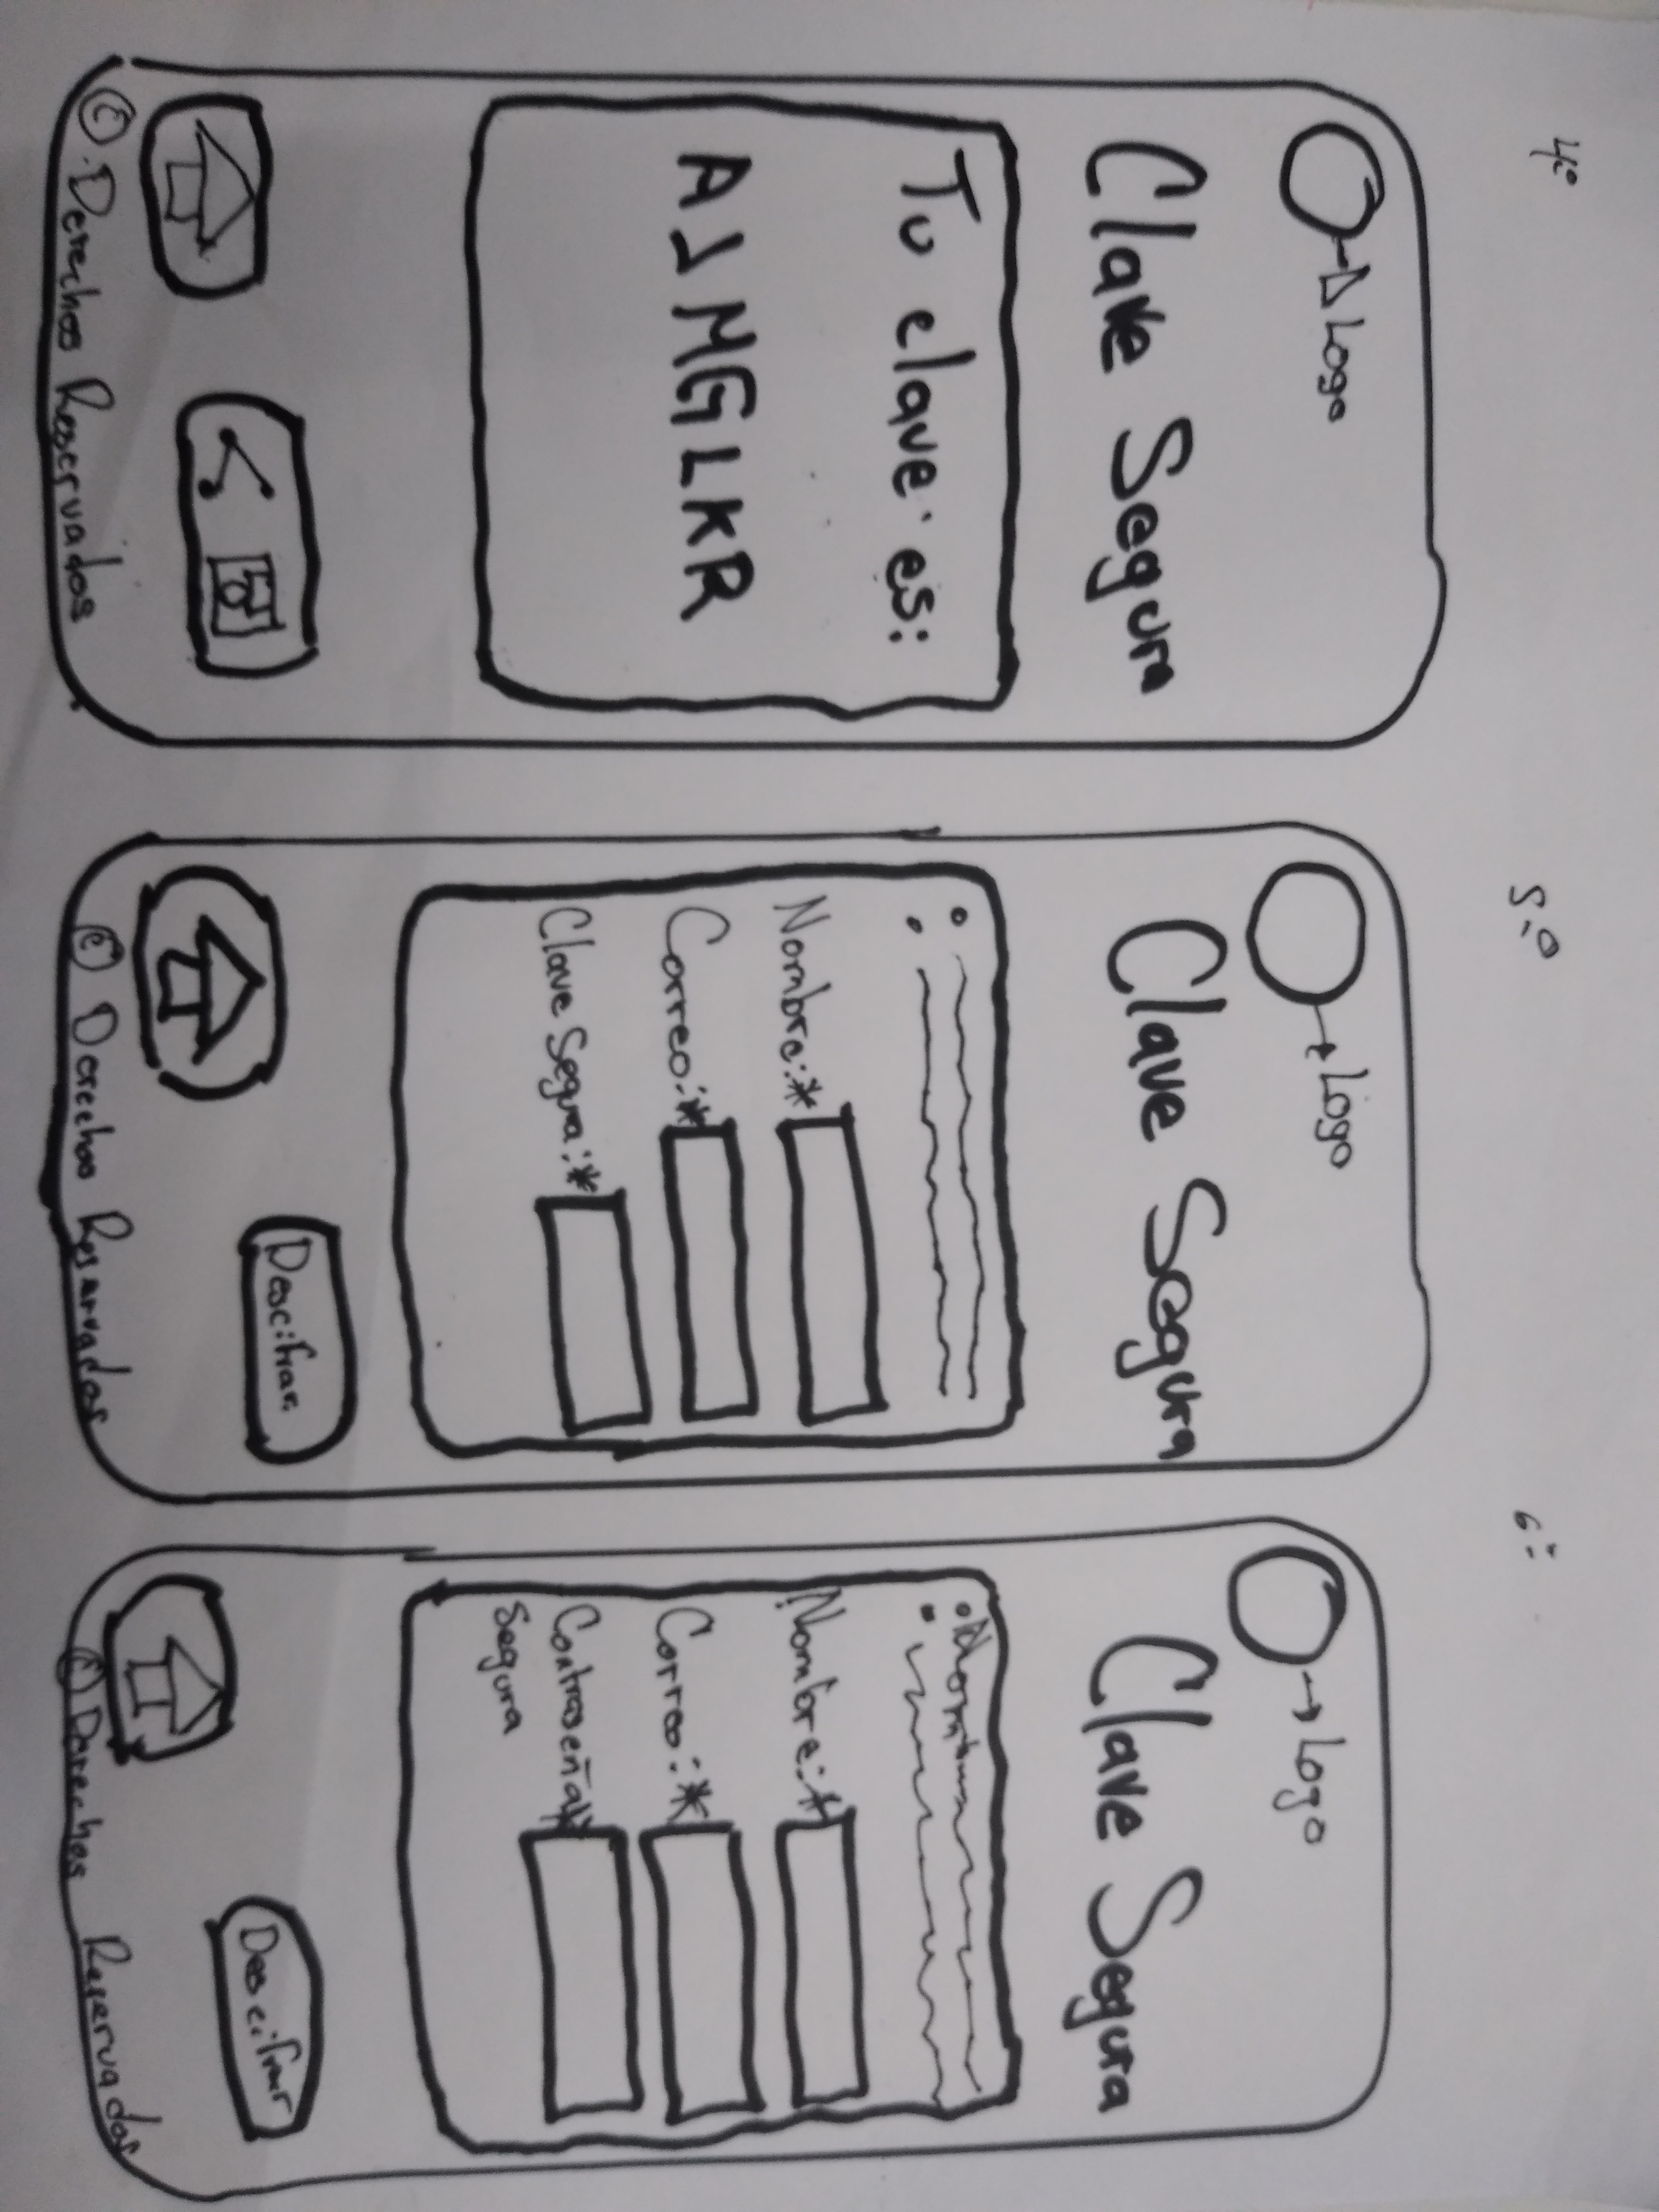 4º
5.º
6:
Logo
Clave Segura
Tu clave es:
AJMGLKR
© Derechos Reservados
Logo
Clave Segura
Nombre:*
Correo:*
Clave Segura:*
Descifrar
© Derechos Reservados
Logo
Clave Segura
Nombre:*
Correo:*
Contraseña*
Segura
Descifrar
© Derechos Reservados